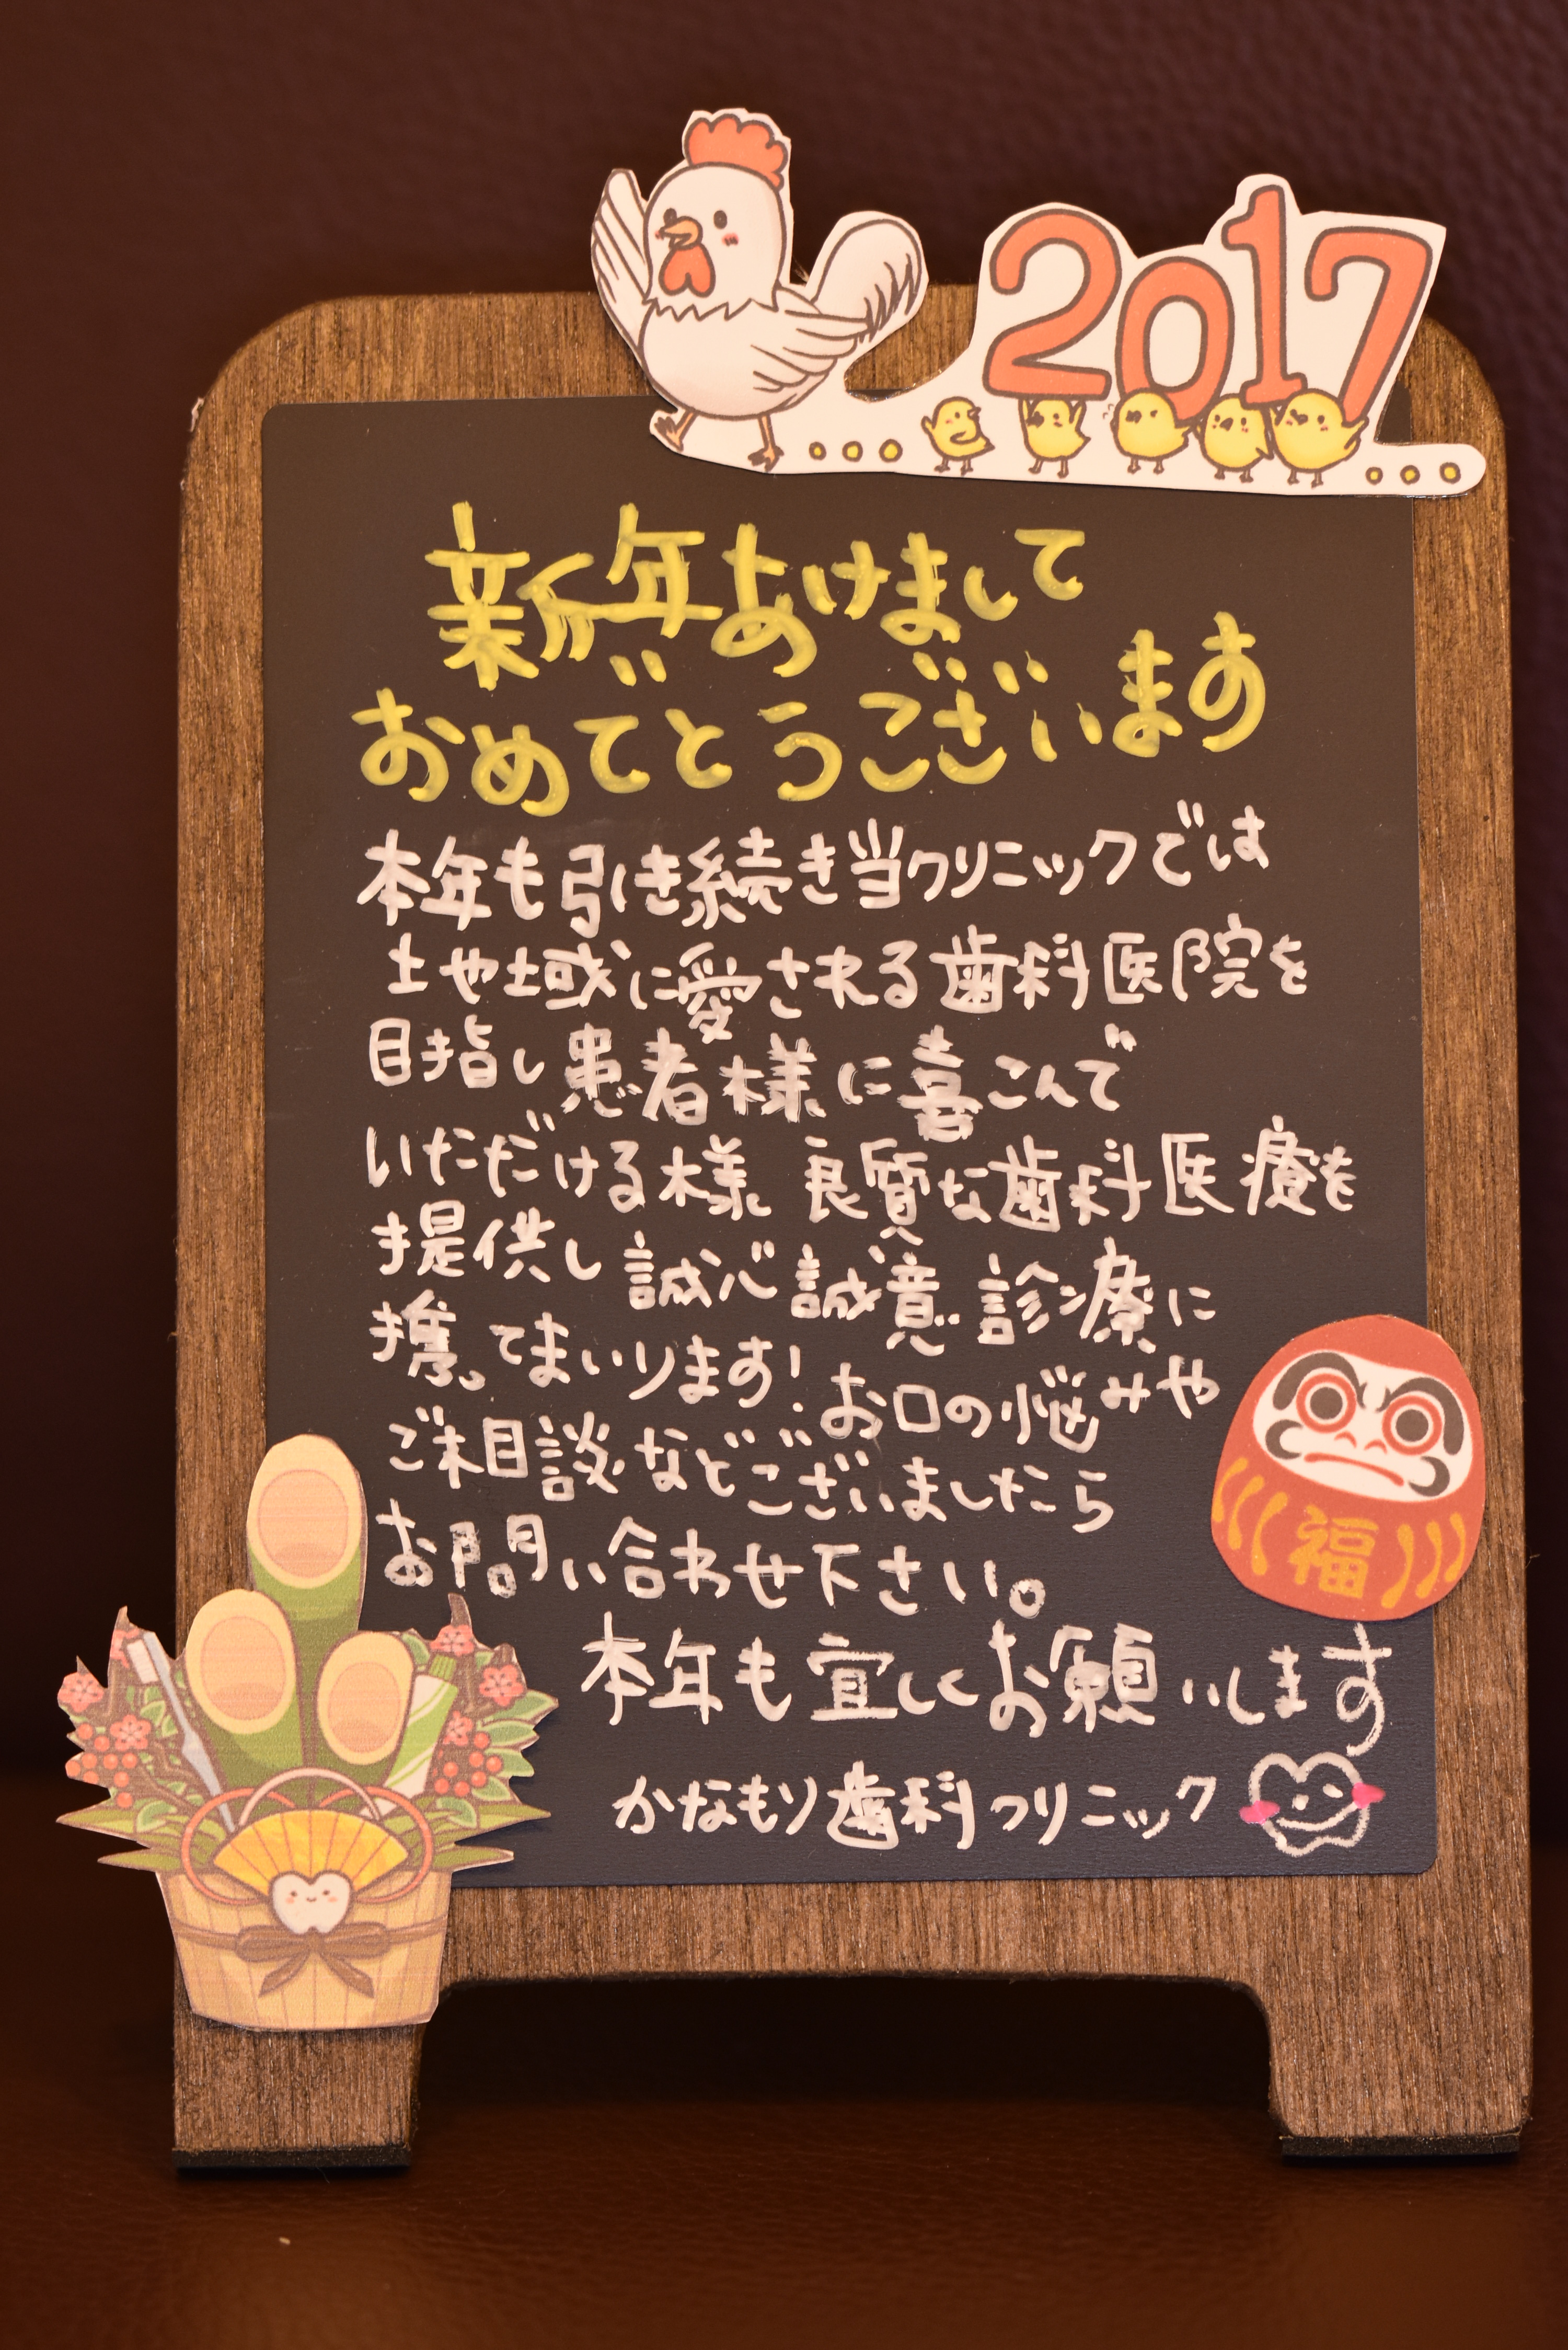 2017
新年あけまして
おめでとうございます
本年も引き続き当クリニックでは
地域に愛される歯科医院を
目指し患者様に喜こんで
いただける様、良質な歯科医療を
提供し誠心誠意診療に
携ってまいります！お口の悩みや
ご相談などございましたら
お問い合わせ下さい。
福
本年も宜しくお願いします
かなもり歯科クリニック